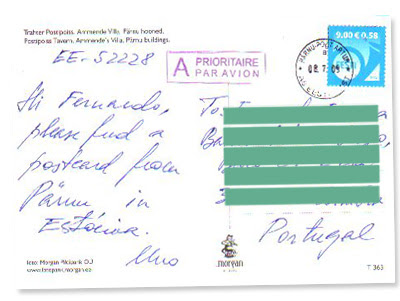 Trahter Postipoiss. Ammende Villa. Pärnu hooned.
Postipoiss Tavern. Ammende's Villa. Pärnu buildings.
EE-52228
A PRIORITAIRE
PAR AVION
9.00 € 0.58
08.7.09
Hi Fernando,
please find a
postcard from
Pärnu in
Estónia.
Uno
To:
Portugal
foto: Morgan Pildipank OÜ
morgan
T 363